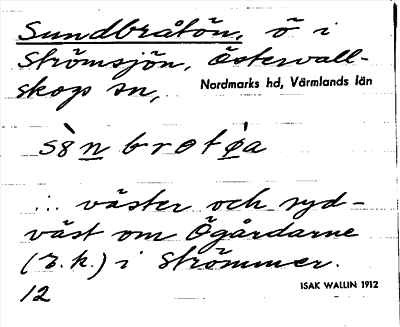 Sundbråtön, ö i
Strömsjön, Östervall-
skogs sn,
Nordmarks hd, Värmlands län
... väster och syd-
väst om Ögårdarne
(r.k.) i Strömmer.
12
ISAK WALLIN 1912